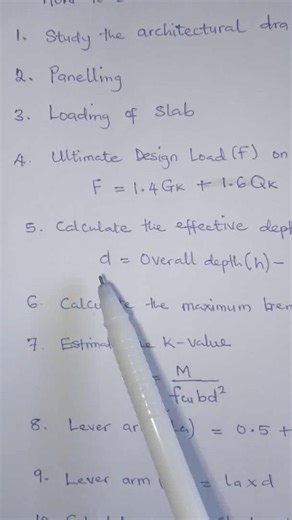 1. Study the architectural dra
2. Panelling
3. Loading of slab
4. Ultimate Design Load (F) on
F = 1.4Gk + 1.6Qk
5. Calculate the effective dept
d = Overall depth (h) -
6. Calculate the maximum ben
7. Estimate the K-value
= M / fcubd²
8. Lever arm (La) = 0.5 +
9. Lever arm = La x d